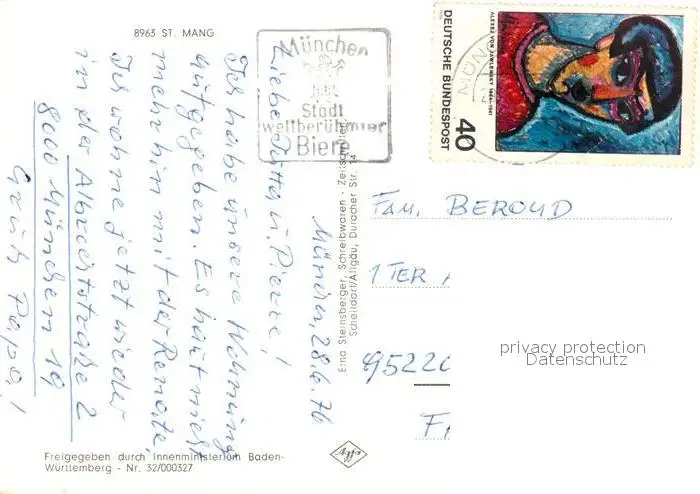 8963 ST. MANG
München
die
Stadt
weltberühmter
Biere
DEUTSCHE BUNDESPOST
40
ALEXEJ VON JAWLENSKY 1864-1941
München, 28.6.76
Liebe Jutta u. Pierre!
Ich habe unsere Wohnung
aufgegeben. Es haut nicht
mehr hin mit der Renate,
Ich wohne jetzt wieder
in der Albrechtstraße 2
8000 München 19
Gruß Papa!
Erna Sternsberger, Schreibwaren - Zeitschriften
Scheidorf/Allgäu, Duracher Str. 14
FAM. BEROUD
1 TER
95220
privacy protection
Datenschutz
Freigegeben durch Innenministerium Baden-
Württemberg - Nr. 32/000327
Agfa